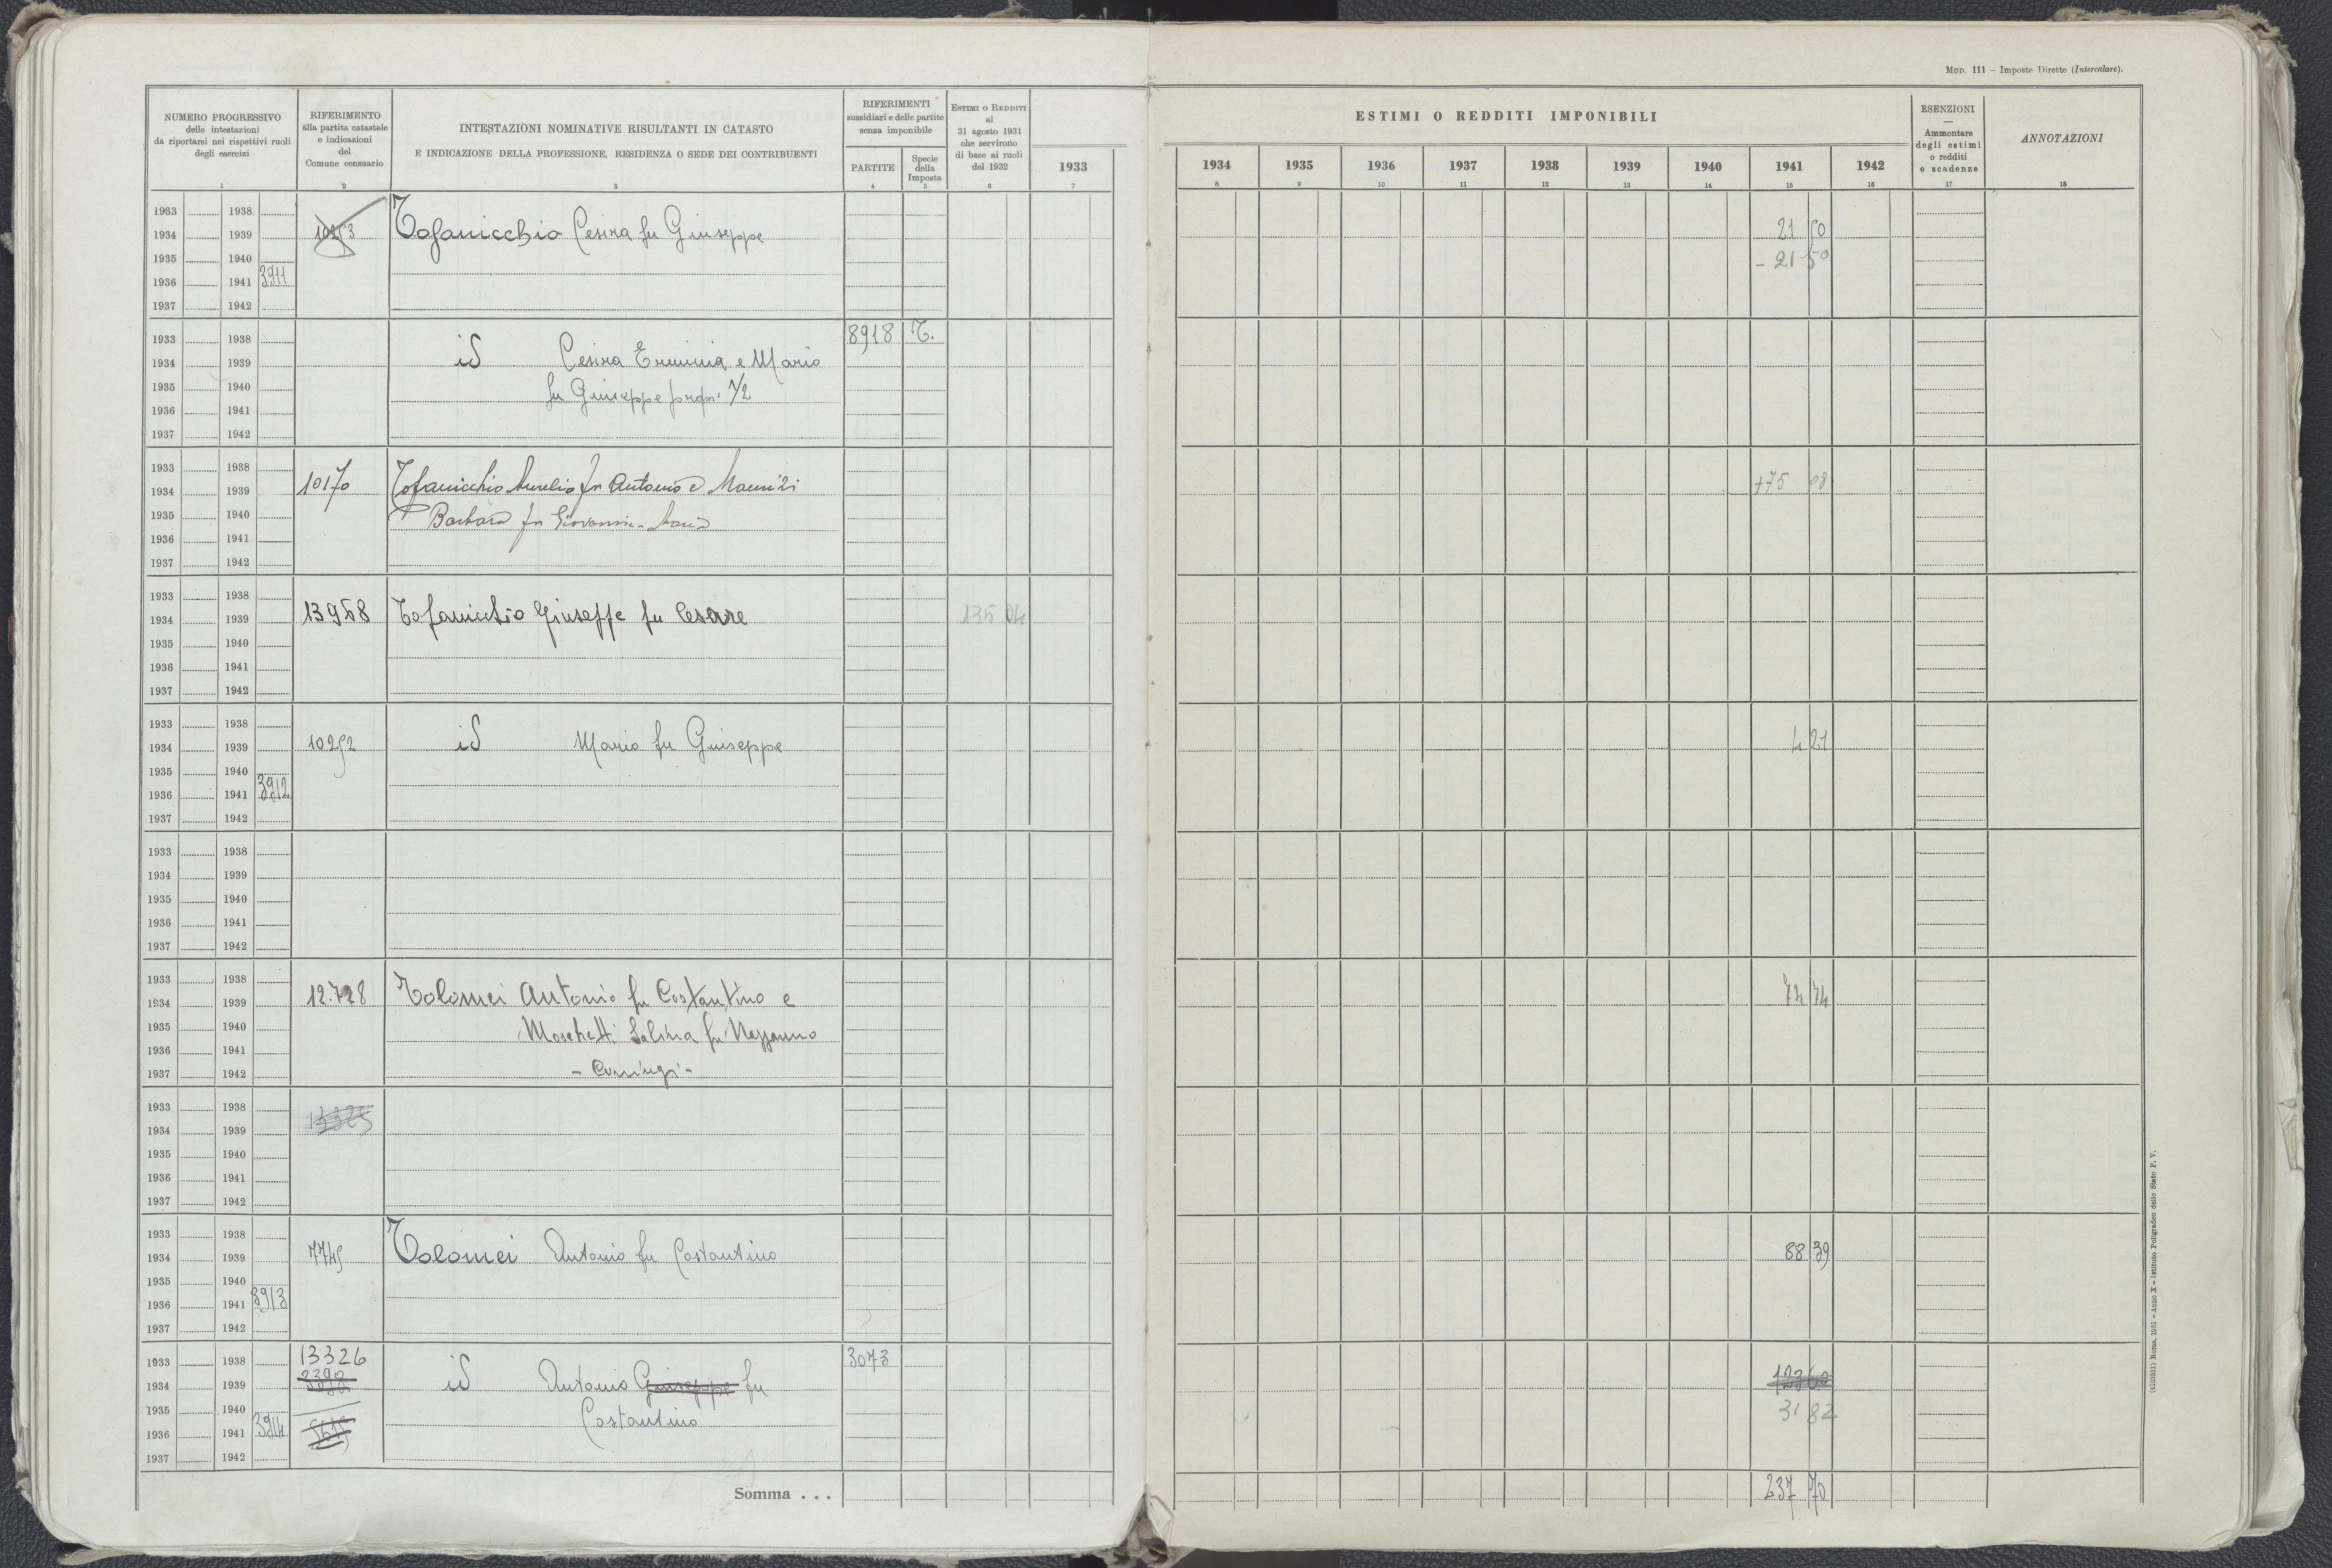 MOD. 111 – Imposte Dirette (Intercalare).
NUMERO PROGRESSIVO
delle intestazioni
da riportarsi nei rispettivi ruoli
degli esercizi
1
RIFERIMENTO
alla partita catastale
e indicazioni
del
Comune censuario
2
INTESTAZIONI NOMINATIVE RISULTANTI IN CATASTO
E INDICAZIONE DELLA PROFESSIONE, RESIDENZA O SEDE DEI CONTRIBUENTI
3
RIFERIMENTI
sussidiari e delle partite
senza imponibile
PARTITE
4
Specie
della
Imposta
5
ESTIMI O REDDITI
al
31 agosto 1931
che servirono
di base ai ruoli
del 1932
6
1933
7
ESTIMI O REDDITI IMPONIBILI
1934 1935 1936 1937 1938 1939 1940 1941 1942
8 9 10 11 12 13 14 15 16
ESENZIONI
—
Ammontare
degli estimi
o redditi
e scadenze
17
ANNOTAZIONI
18
1933 1938
1934 1939 10253 Tofanicchio Cesira fu Giuseppe 21 50
1935 1940 - 21 50
1936 1941 3911
1937 1942
1933 1938 8918 T.
1934 1939 id Cesira Erminia e Mario
1935 1940 fu Giuseppe propr. 1/2
1936 1941
1937 1942
1933 1938
1934 1939 10170 Tofanicchio Aurelio fu Antonio e +75 08
1935 1940 Barbara fu Giovanni
1936 1941
1937 1942
1933 1938
1934 1939 13958 Tofanicchio Giuseppe fu Cesare 135 04
1935 1940
1936 1941
1937 1942
1933 1938
1934 1939 10252 id Mario fu Giuseppe 4 21
1935 1940
1936 1941 3912
1937 1942
1933 1938
1934 1939
1935 1940
1936 1941
1937 1942
1933 1938
1934 1939 12.728 Tolomei Antonio fu Costantino e 74 74
1935 1940 Moschetti fu
1936 1941
1937 1942 - Coniugi -
1933 1938
1934 1939
1935 1940
1936 1941
1937 1942
1933 1938
1934 1939 7745 Tolomei Antonio fu Costantino 88 39
1935 1940
1936 1941 3913
1937 1942
1933 1938 13326 3073
1934 1939 id Antonio Giuseppe fu 12360
1935 1940 Costantino 31 82
1936 1941 3914
1937 1942
Somma . . . 237 70
(4103231) Roma, 1931 – Anno X – Istituto Poligrafico dello Stato P. V.